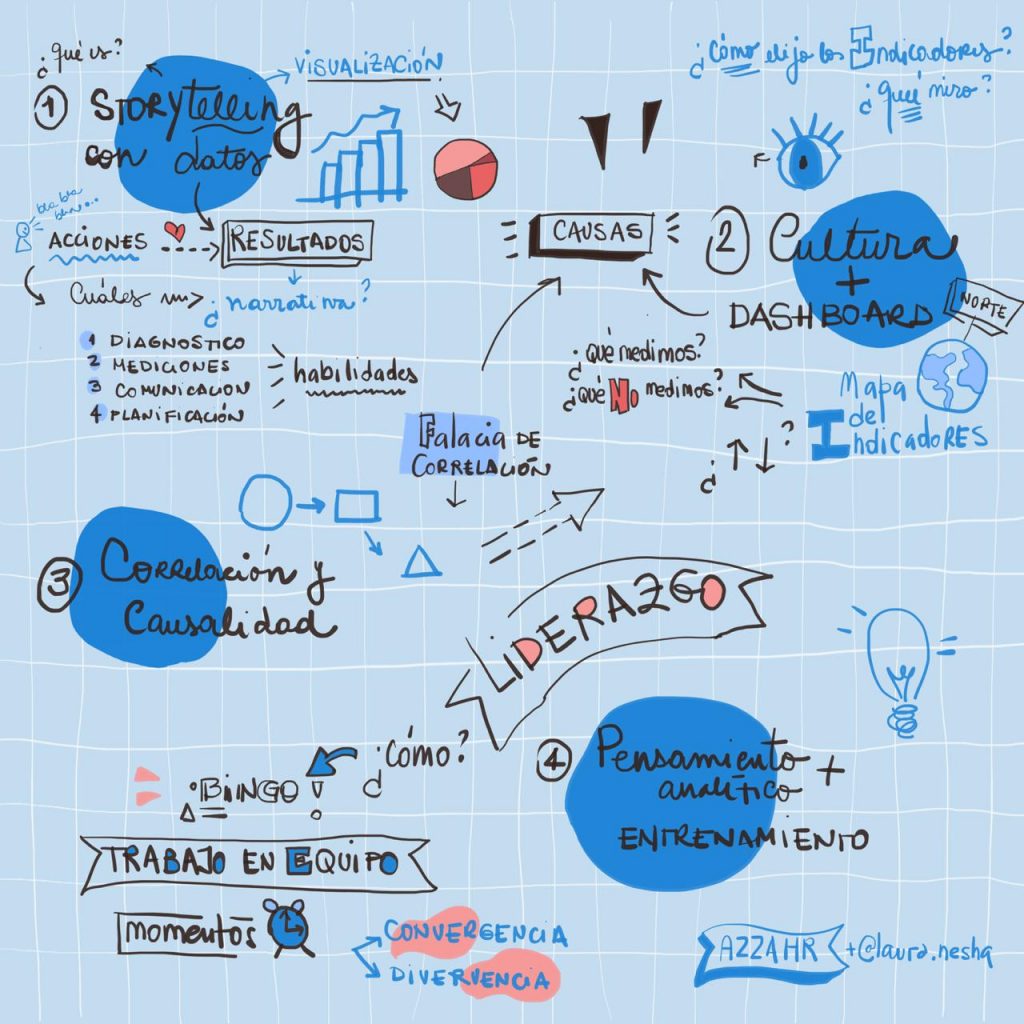 ¿Qué es?
① STORYtelling
con datos
VISUALIZACIÓN
bla bla
blah...
ACCIONES
RESULTADOS
Cuáles un
¿narrativa?
1 DIAGNOSTICO
2 MEDICIONES
3 COMUNICACION
4 PLANIFICACIÓN
habilidades
CAUSAS
¿Cómo elijo los Indicadores?
¿qué miro?
② Cultura
+
DASHBOARD
NORTE
Mapa
del
Indicadores
¿Qué medimos?
¿qué No medimos?
¿↑↓?
Falacia DE
CORRELACIÓN
③ Correlación y
Causalidad
LIDERAZGO
④ Pensamiento
analítico
+
ENTRENAMIENTO
¿Cómo?
¡BINGO!
TRABAJO EN EQUIPO
momentos
CONVERGENCIA
DIVERVENCIA
AZZAHR +@laura.nesha